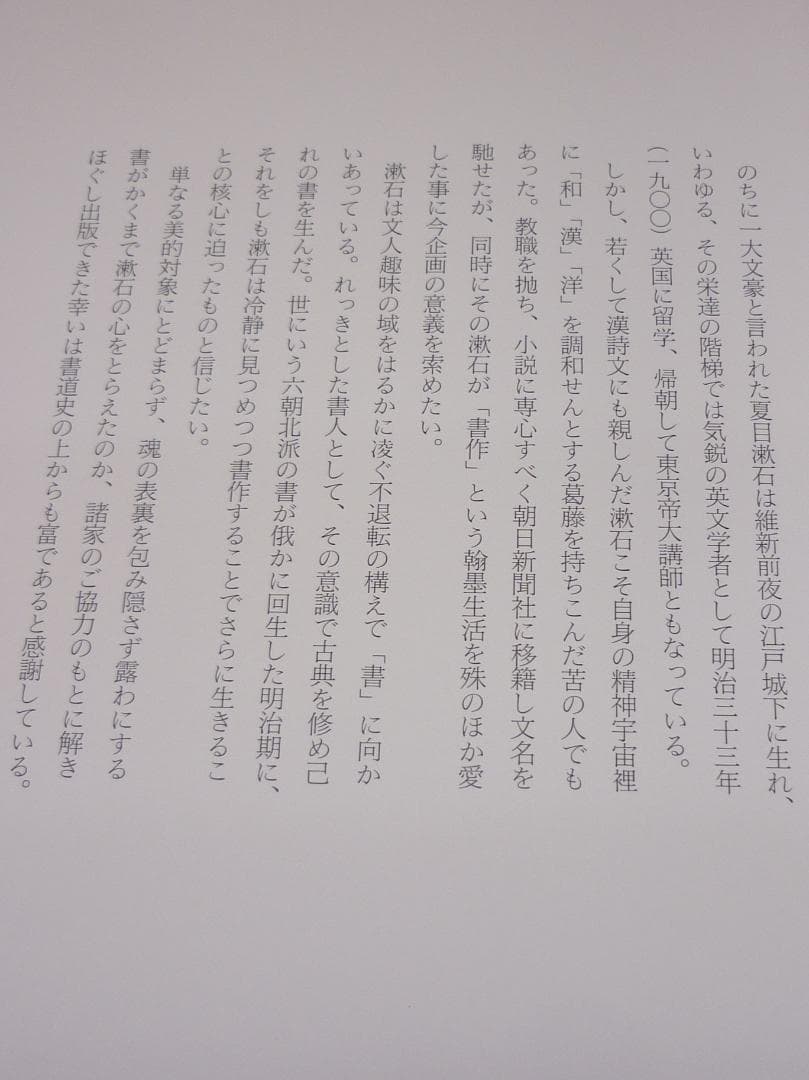 のちに一大文豪と言われた夏目漱石は維新前夜の江戸城下に生れ、
いわゆる、その栄達の階梯では気鋭の英文学者として明治三十三年
(一九〇〇)英国に留学、帰朝して東京帝大講師ともなっている。
しかし、若くして漢詩文にも親しんだ漱石こそ自身の精神宇宙裡
に「和」「漢」「洋」を調和せんとする葛藤を持ちこんだ苦の人でも
あった。教職を抛ち、小説に専心すべく朝日新聞社に移籍し文名を
馳せたが、同時にその漱石が「書作」という翰墨生活を殊のほか愛
した事に今企画の意義を索めたい。
漱石は文人趣味の域をはるかに凌ぐ不退転の構えで「書」に向か
いあっている。れっきとした書人として、その意識で古典を修め己
れの書を生んだ。世にいう六朝北派の書が俄かに回生した明治期に、
それをしも漱石は冷静に見つめつつ書作することでさらに生きるこ
との核心に迫ったものと信じたい。
単なる美的対象にとどまらず、魂の表裏を包み隠さず露わにする
書がかくまで漱石の心をとらえたのか、諸家のご協力のもとに解き
ほぐし出版できた幸いは書道史の上からも富であると感謝している。